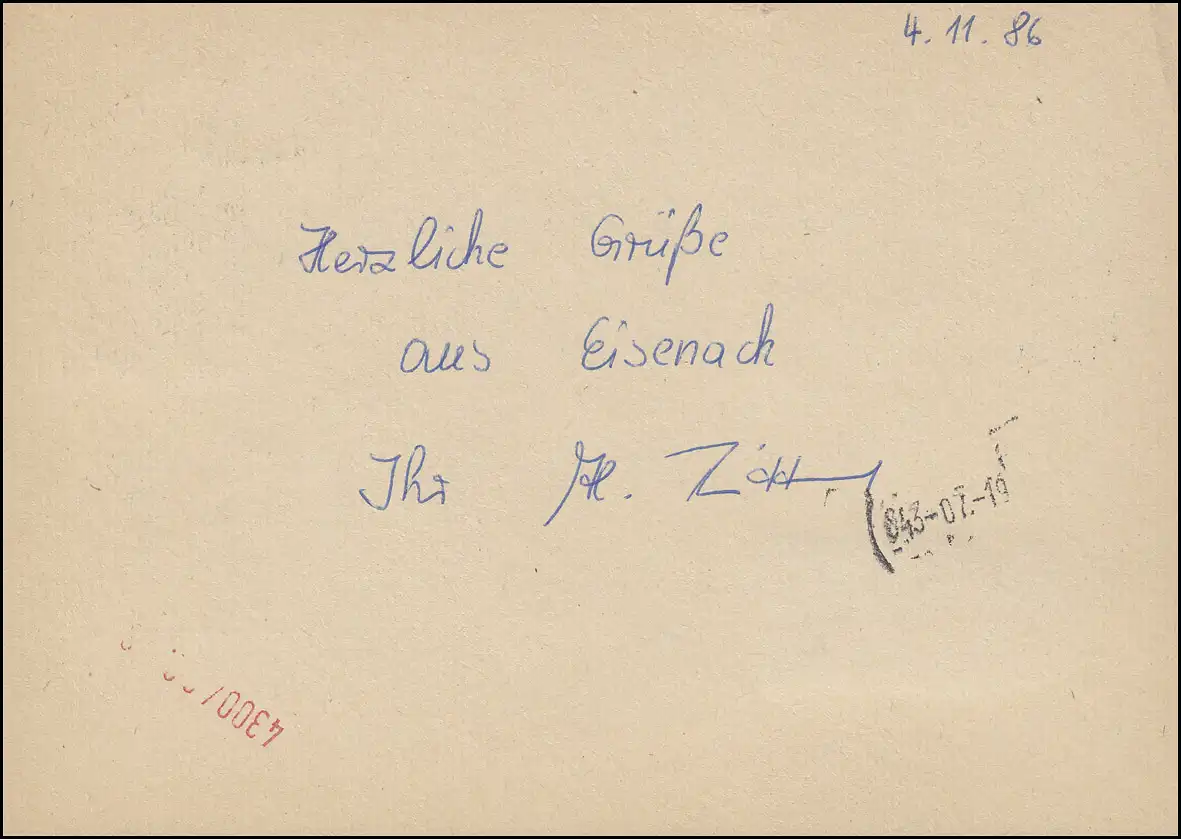 4. 11. 86
Herzliche Grüße
aus Eisenach
Ihr H.
043-07.-19
4300/